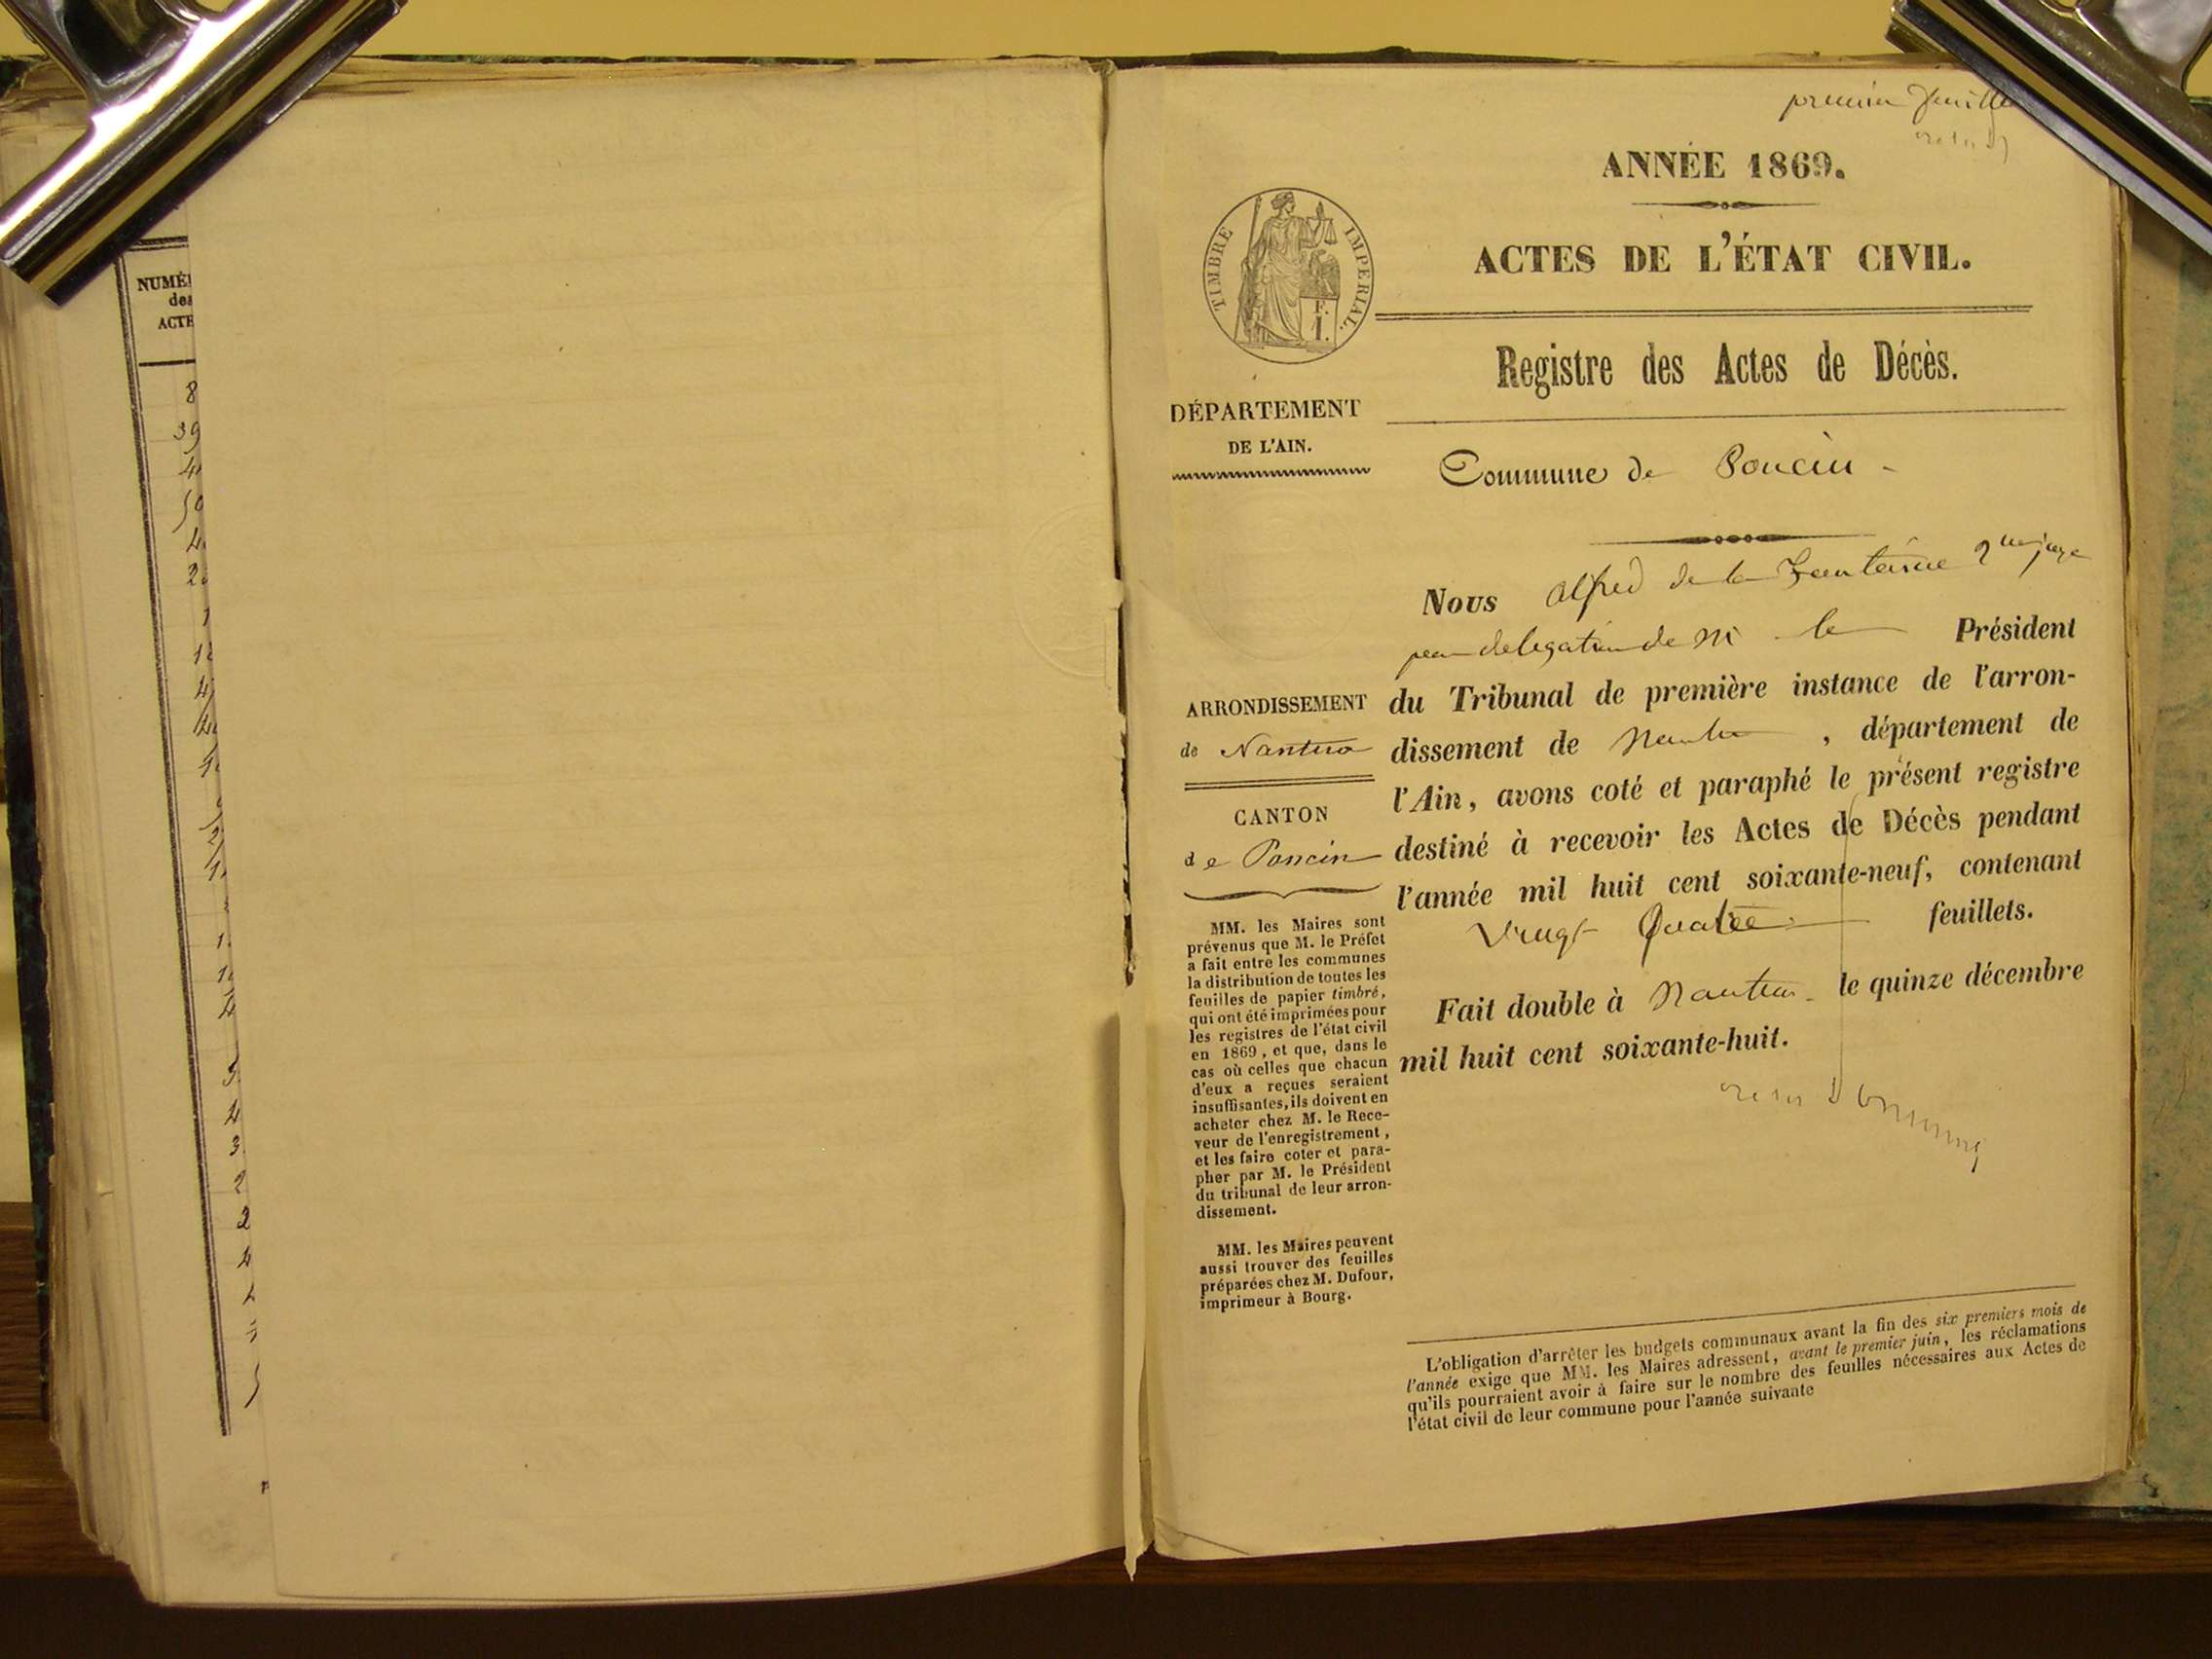 NUMÉ
des
ACTE
8
39
premier feuillet
ANNÉE 1869.
TIMBRE IMPERIAL.
F.
I.
ACTES DE L'ÉTAT CIVIL.
Registre des Actes de Décès.
DÉPARTEMENT
DE L'AIN.
Commune de Poncin
Nous Alfred de la juge
par delegation de M le Président
du Tribunal de première instance de l'arron-
dissement de Nantua, département de
l'Ain, avons coté et paraphé le présent registre
destiné à recevoir les Actes de Décès pendant
l'année mil huit cent soixante-neuf, contenant
Vingt Quatre feuillets.
Fait double à Nantua le quinze décembre
mil huit cent soixante-huit.
ARRONDISSEMENT
de Nantua
CANTON
de Poncin
MM. les Maires sont
prévenus que M. le Préfet
a fait entre les communes
la distribution de toutes les
feuilles de papier timbré,
qui ont été imprimées pour
les registres de l'état civil
en 1869, et que, dans le
cas où celles que chacun
d'eux a reçues seraient
insuffisantes, ils doivent en
acheter chez M. le Rece-
veur de l'enregistrement,
et les faire coter et para-
pher par M. le Président
du tribunal de leur arron-
dissement.
MM. les Maires peuvent
aussi trouver des feuilles
préparées chez M. Dufour,
imprimeur à Bourg.
L'obligation d'arrêter les budgets communaux avant la fin des six premiers mois de
l'année exige que MM. les Maires adressent, avant le premier juin, les réclamations
qu'ils pourraient avoir à faire sur le nombre des feuilles nécessaires aux Actes de
l'état civil de leur commune pour l'année suivante